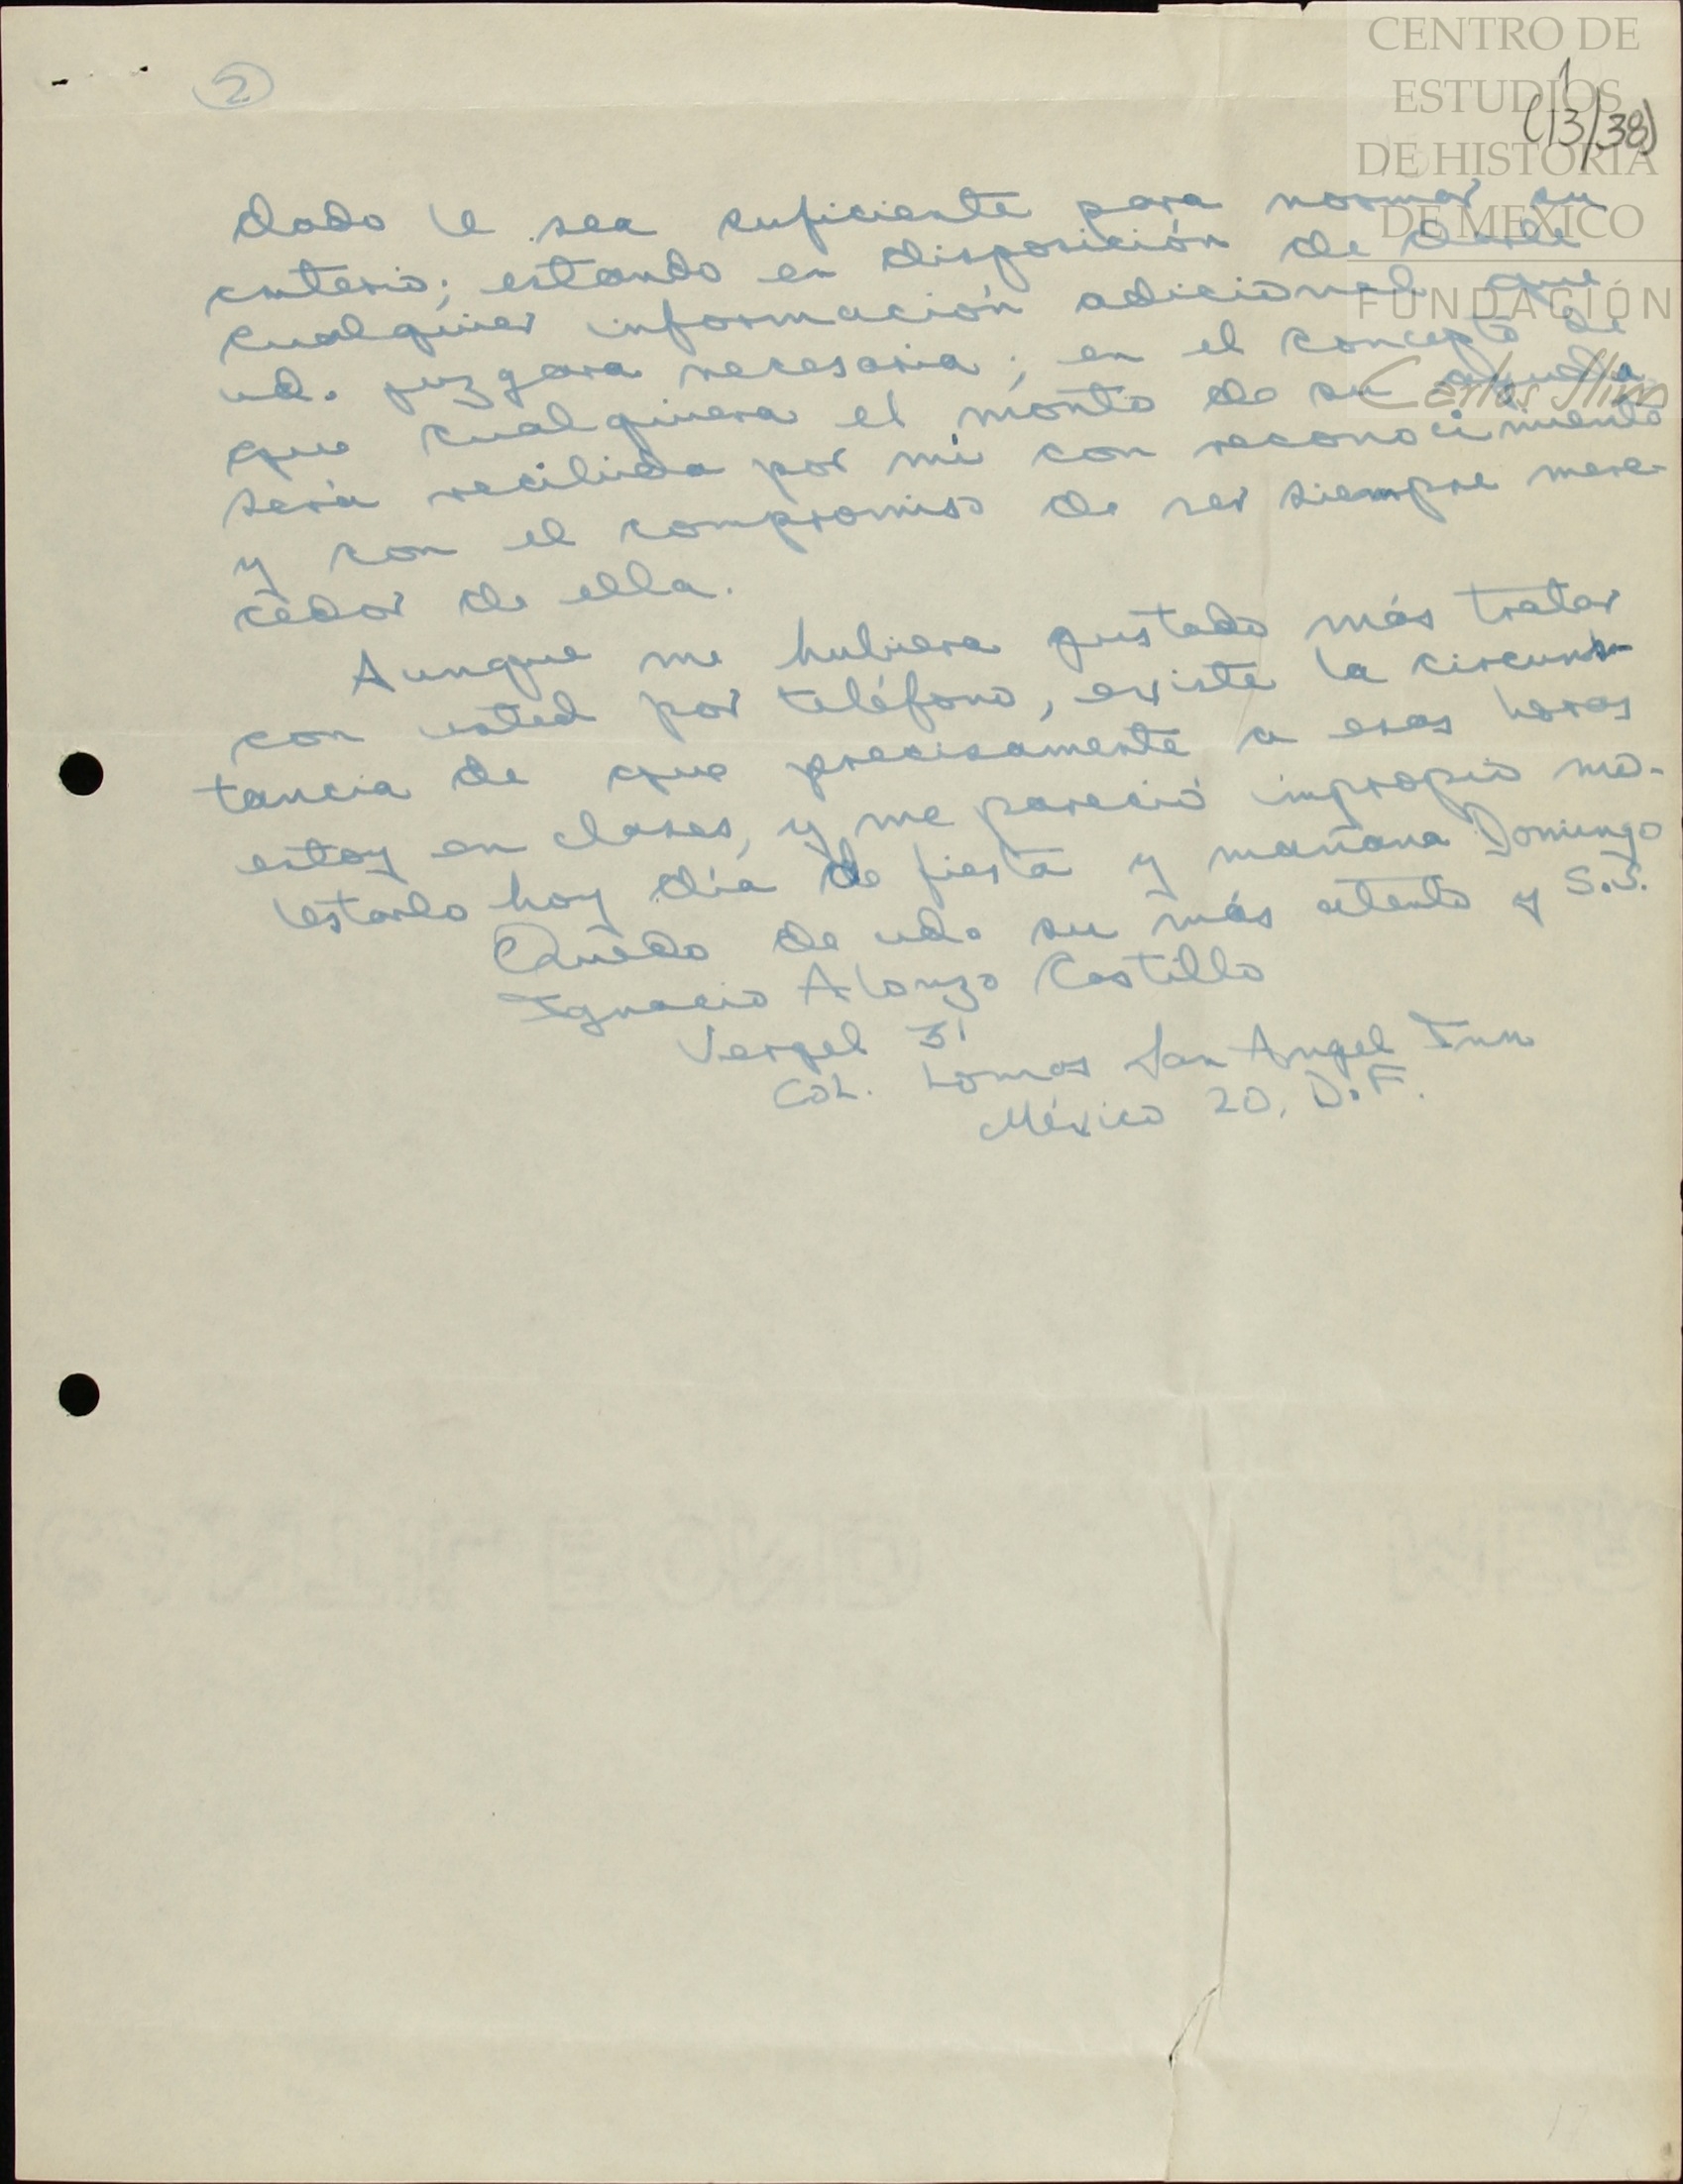 2
CENTRO DE
ESTUDIOS
DE HISTORIA
DE MEXICO
FUNDACIÓN
Carlos Slim
(13/38)
dado le sea suficiente para normar su
criterio; estando en disposición de darle
cualquier información adicional que
ud. juzgara necesaria; en el concepto de
que cualquiera el monto de su ayuda
será recibida por mi con reconocimiento
y con el compromiso de ser siempre mere-
cedor de ella.
Aunque me hubiera gustado más tratar
con usted por teléfono, existe la circuns-
tancia de que precisamente a esas horas
estoy en clases, y me pareció impropio mo-
lestarlo hoy día de fiesta y mañana Domingo
Quedo de ud. su más atento y S.S.
Ignacio Alonzo Castillo
Vergel 31
Col. Lomas San Angel Inn
México 20, D.F.